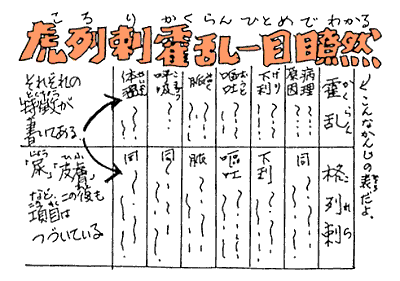 ころり かくらん ひとめでわかる
虎列刺霍乱一目瞭然
こんなかんじの表だよ。
かくらん
霍乱
病理
原因
げり
下利
嘔吐
脈
呼吸
体温
これら
格列刺
同
下利
嘔吐
脈
同
同
それぞれの
とくちょう
特徴が
書いてある。
ひふ
「尿」「皮膚」
など、この後も
項目は
つづいている